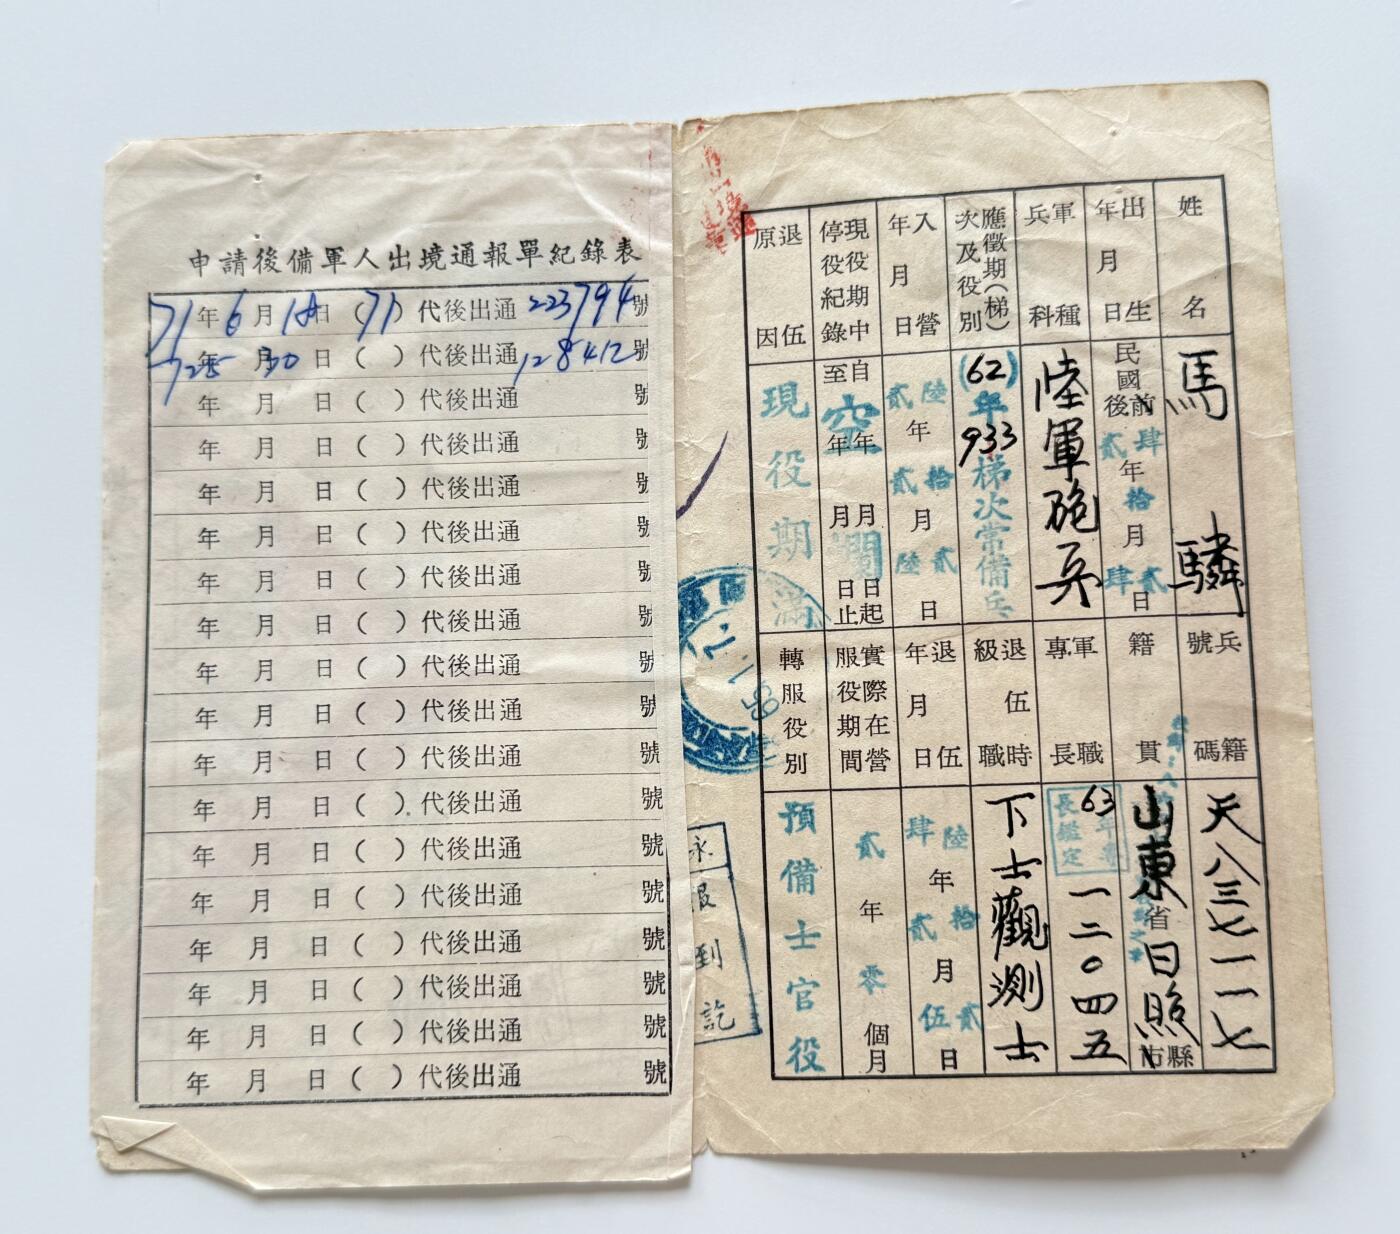 申請後備軍人出境通報單紀錄表
71年6月18日(71)代後出通223794號
72年5月30日( )代後出通128412號
年 月 日( )代後出通 號
年 月 日( )代後出通 號
年 月 日( )代後出通 號
年 月 日( )代後出通 號
年 月 日( )代後出通 號
年 月 日( )代後出通 號
年 月 日( )代後出通 號
年 月 日( )代後出通 號
年 月 日( )代後出通 號
年 月 日( )代後出通 號
年 月 日( )代後出通 號
年 月 日( )代後出通 號
年 月 日( )代後出通 號
年 月 日( )代後出通 號
年 月 日( )代後出通 號
年 月 日( )代後出通 號
姓名
馬驎
兵籍號碼
天八三七一一七
出生年月日
民國前後肆貳年拾月貳肆日
籍貫
山東省日照縣市
軍種兵科
陸軍砲兵
軍職專長
63年專長鑑定
一二〇四五
應徵期(梯)次及役別
(62)年933梯次常備兵
退伍時級職
下士觀測士
入營年月日
陸貳年拾貳月貳陸日
退伍年月日
陸肆年拾貳月貳伍日
現役期中停役紀錄
自年月日起
至年月日止
空欄
實際在營服役期間
貳年零個月
退伍原因
現役期滿
轉服役別
預備士官役
報到訖